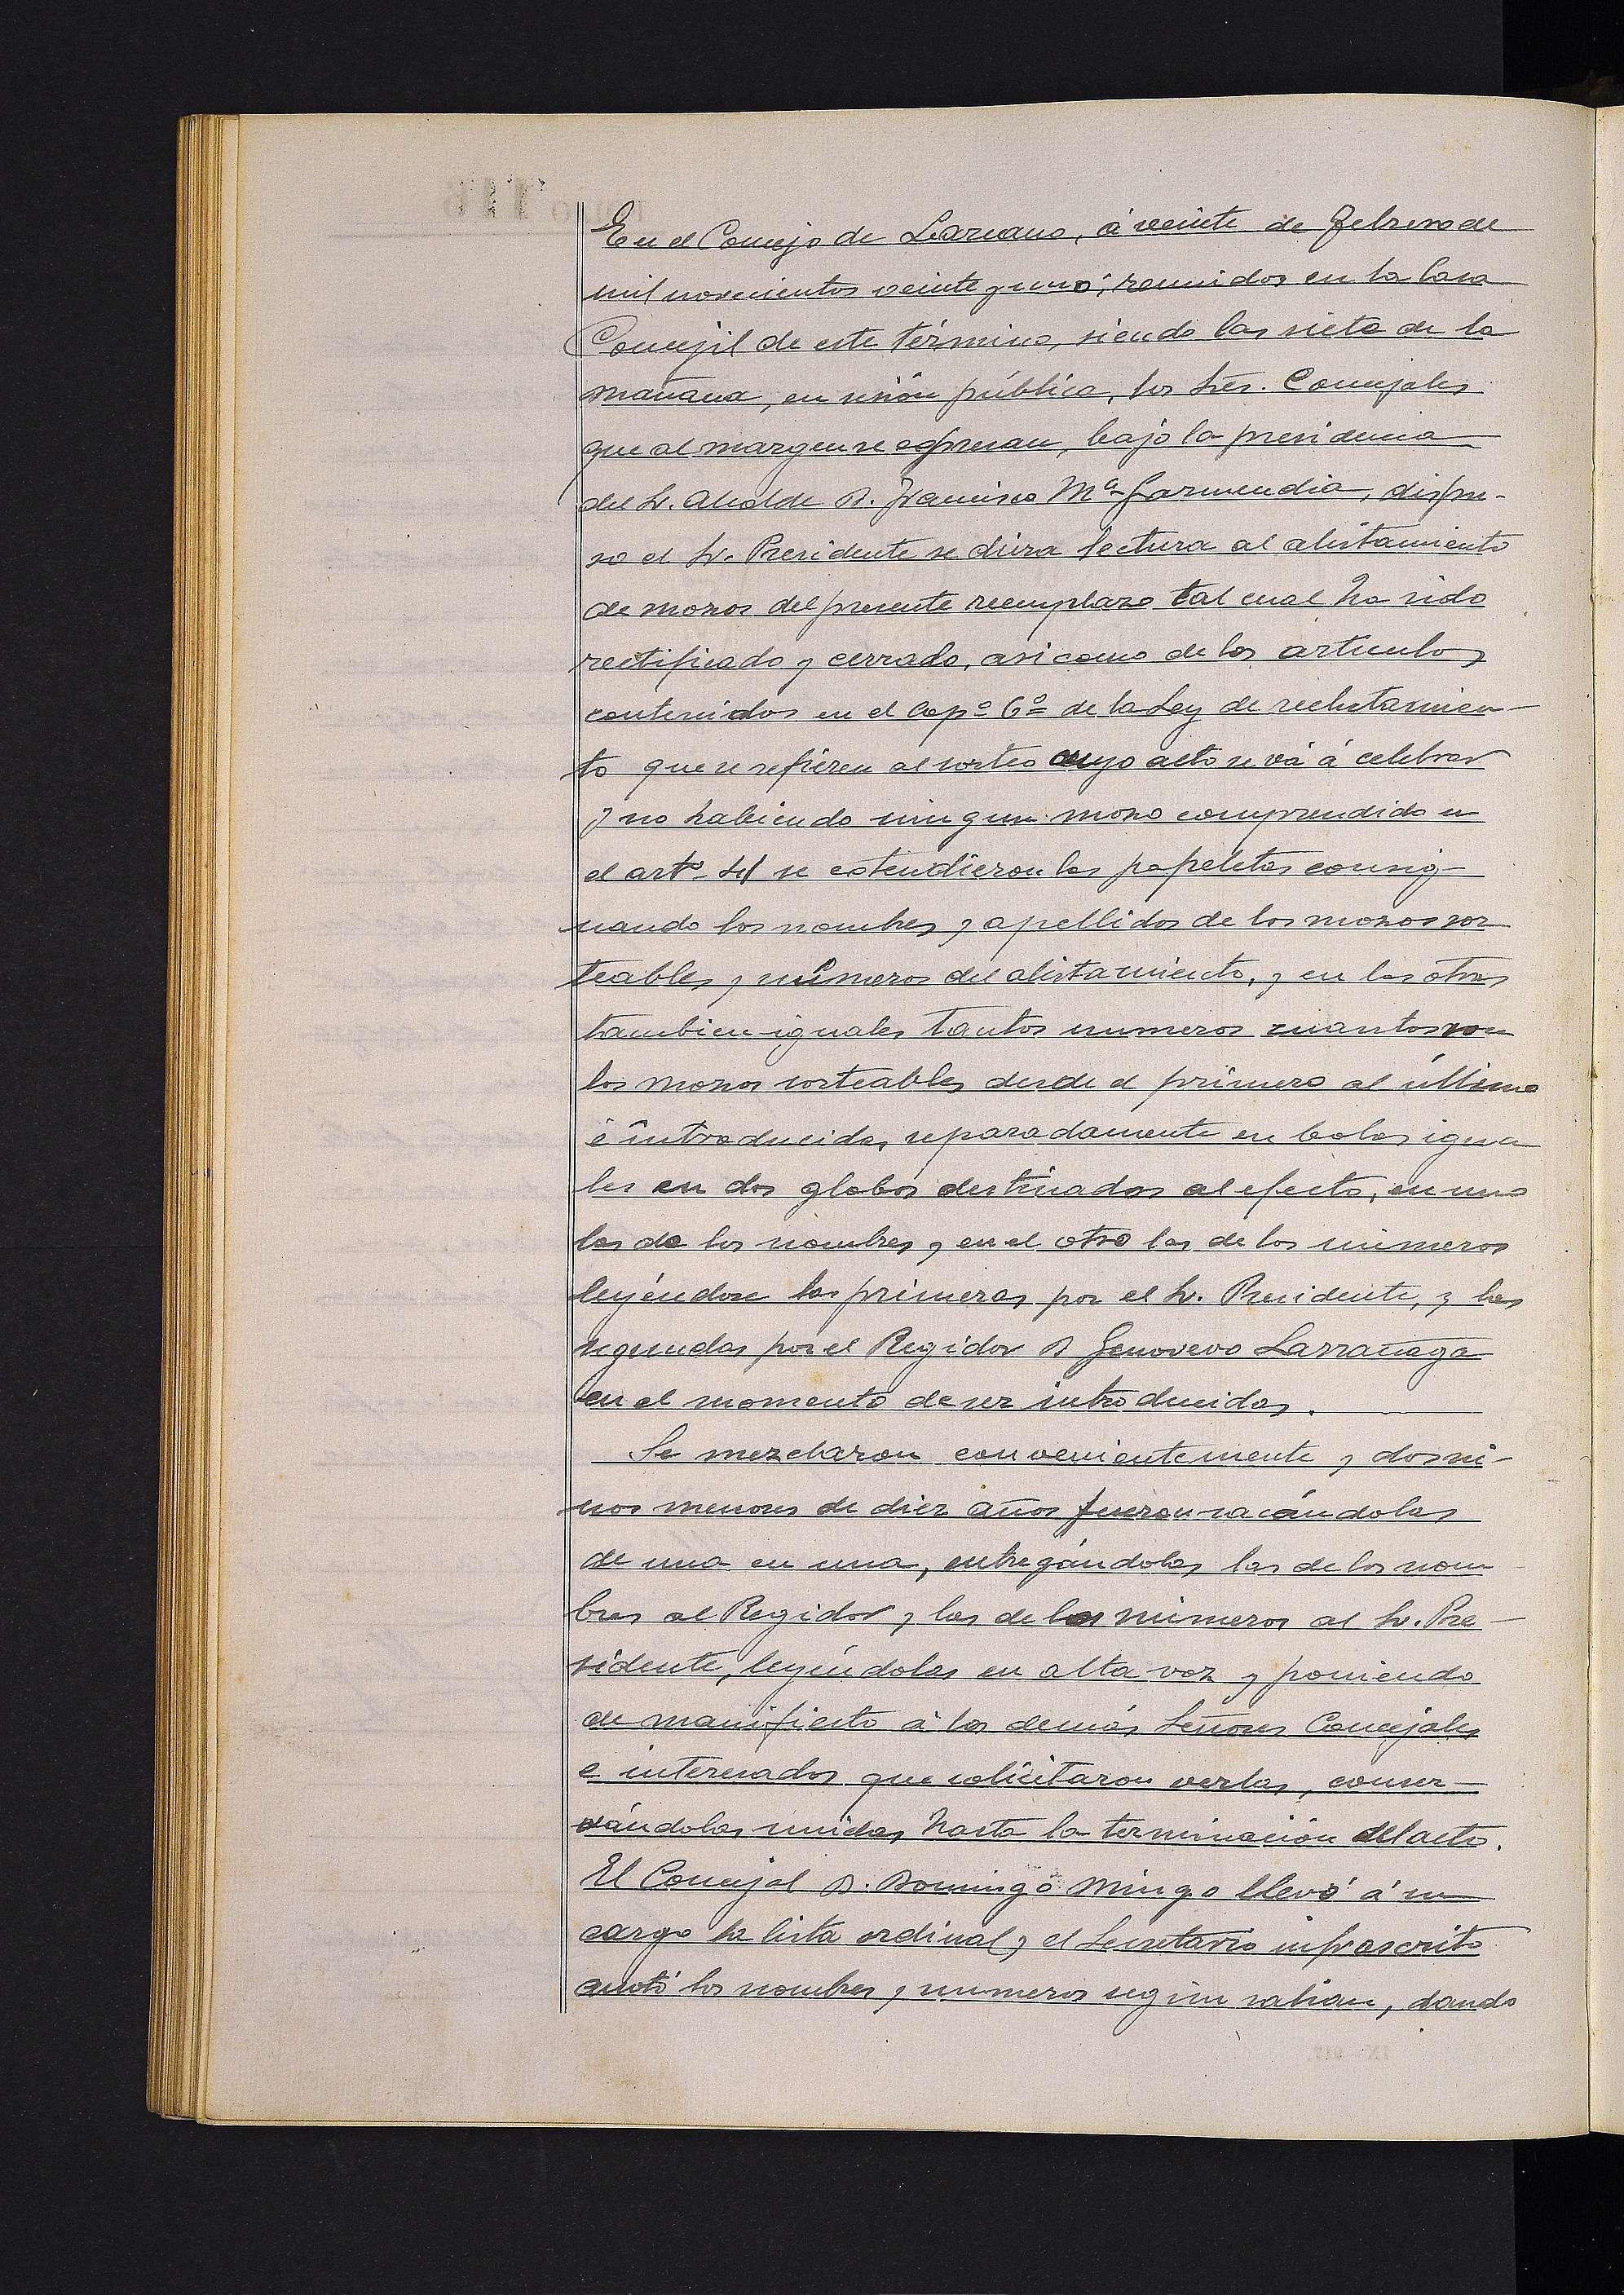 En el Concejo de Lazcano, á veinte de Febrero de
mil novecientos veinte y uno; reunidos en la Casa
Concejil de este término, siendo las siete de la
mañana, en sesión pública, los Sres. Concejales
que al margen se expresan, bajo la presidencia
del Sr. Alcalde D. Francisco Mª Garmendia, dispu-
so el Sr. Presidente se diera lectura al alistamiento
de mozos del presente reemplazo tal cual ha sido
rectificado y cerrado, asi como de los articulos
contenidos en el Capº 6º de la Ley de reclutamien-
to que se refieren al sorteo cuyo acto se vá á celebrar
y no habiendo ningun mozo comprendido en
el artº se estendieron las papeletas consig-
nando los nombres y apellidos de los mozos sor
teables y números del alistamiento, y en las otras
tambien iguales tantos numeros cuantos son
los mozos sorteables desde el primero al último
é introducidas separadamente en bolas igua
les en dos globos destinados al efecto, en uno
las de los nombres y en el otro las de los números
leyéndose las primeras por el Sr. Presidente, y las
segundas por el Regidor D Genovevo Larrañaga
en el momento de ser introducidas.
Se mezclaron convenientemente y dos ni-
nos menores de diez años fueron sacándolas
de una en una, entregándolas las de los nom
bres al Regidor y las de los números al Sr. Pre-
sidente, leyéndolas en alta voz y poniendo
de manifiesto á los demás Señores Concejales
e interesados que solicitaron verlas, conser-
vándolas unidas hasta la terminación del acto.
El Concejal D. Domingo Mingo llevó á su
cargo la lista ordinal y el Secretario infrascrito
anotó los nombres y numeros segun salian, dando